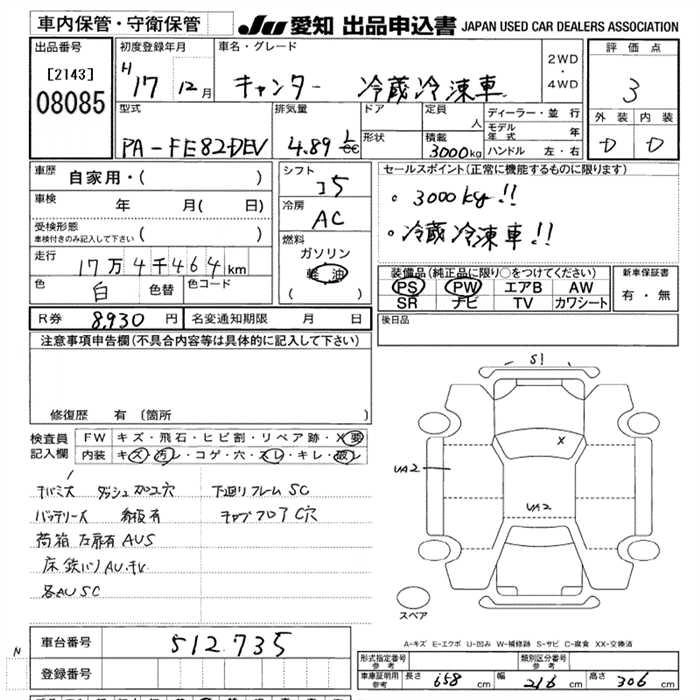 車内保管・守衛保管
JU 愛知 出品申込書 JAPAN USED CAR DEALERS ASSOCIATION
出品番号
[2143]
08085
初度登録年月
H17 12月
車名・グレード
キャンター 冷蔵冷凍車
2WD
・
4WD
評価点
3
外装 内装
D D
型式
PA-FE82DEV
排気量
4.89 L
ドア
形状
定員
人
積載
3000kg
ディーラー・並行
モデル年式 年
ハンドル 左・右
車歴 自家用・( )
車検 年 月( 日)
受検形態
車検付きのみ記入して下さい ( )
走行 17万4千464km
色 白 色替 色コード
シフト
コ5
冷房
AC
燃料
ガソリン
軽油
( )
セールスポイント(正常に機能するものに限ります)
。3000kg!!
。冷蔵冷凍車!!
装備品(純正品に限り○をつけてください)
PS PW エアB AW
SR ナビ TV カワシート
新車保証書
有・無
R券 8,930円 名変通知期限 月 日
後日品
注意事項申告欄(不具合内容等は具体的に記入して下さい)
修復歴 有(箇所 )
検査員
記入欄
FW キズ・飛石・ヒビ割・リペア跡・X・要
内装 キズ・汚レ・コゲ・穴・スレ・キレ・破レ
ダッシュ加工穴 下廻りフレームSC
バッテリーズ 有 キャブフロアC穴
荷箱 左扉有AUS
床鉄バリAU.チV
各AUSC
S1
X
UA2
UA2
スペア
A-キズ E-エクボ U-凹み W-補修跡 S-サビ C-腐食 XX-交換済
N
車台番号 512735
登録番号
形式指定番号
参考
類別区分番号
参考
車庫証明用
参考
長さ 658cm 幅 216cm 高さ 306cm